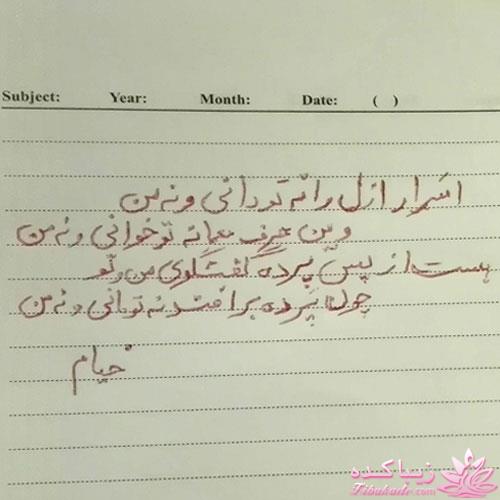 Subject: Year: Month: Date: ( )
اسرار ازل را نه تو دانی و نه من
وین حرف معما نه تو خوانی و نه من
هست از پس پرده گفتگوی من و تو
چون پرده برافتد نه تو مانی و نه من
خیام
زیباکده
Zibakade.com